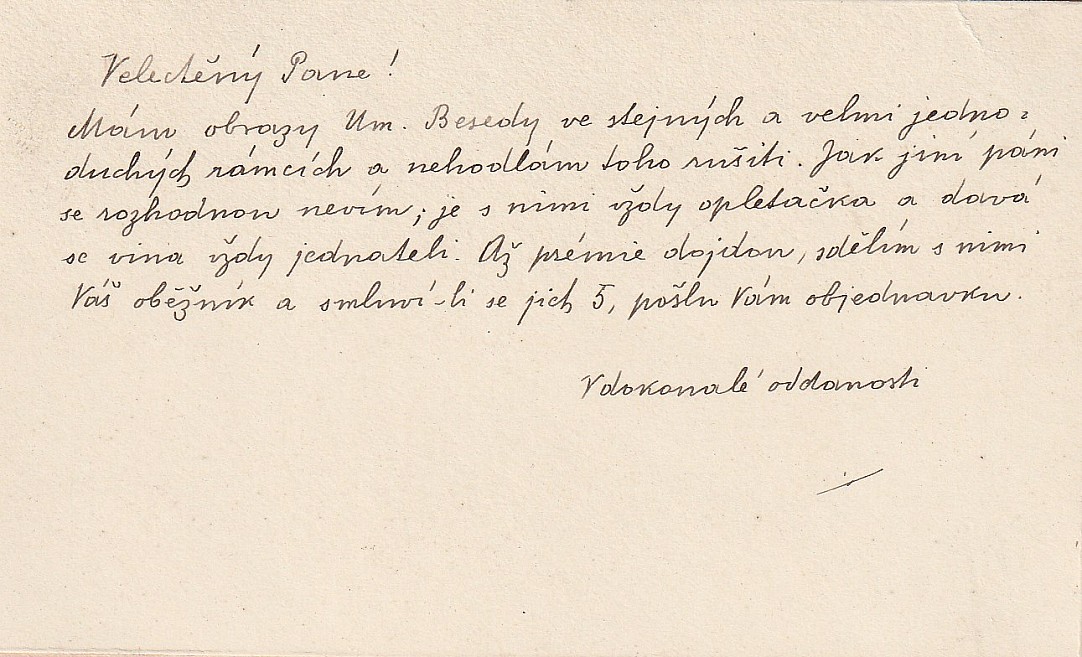 Velectěný Pane!
Mám obrazy Um. Besedy ve stejných a velmi jedno=
duchých rámcích a nehodlám toho rušiti. Jak jiní páni
se rozhodnou nevím; je s nimi vždy opletačka a dává
se vina vždy jednateli. Až prémie dojdou, sdělím s nimi
Váš oběžník a smluví-li se jich 5, pošlu Vám objednavku.
V dokonalé oddanosti